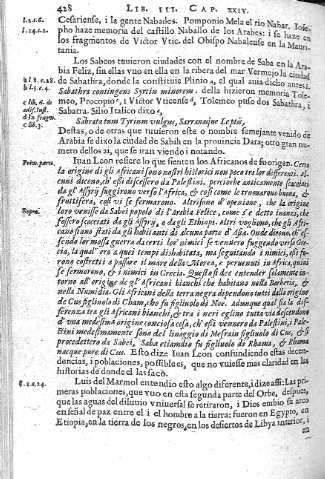 428 LIB. III. CAP. XXIV.
l.2.c.6. Cesariense, i la gente Nabades. Pomponio Mela el rio Nabar. Iose-
l.14.c.2. pho haze memoria del castillo Naballo de los Arabes: i se haze en
los fragmentos de Victor Vtic. del Obispo Nabalense en la Mauri-
tania.
Los Sabeos tuuieron ciudades con el nombre de Saba en la Ara-
bia Feliz, sin ellas vuo en ella en la ribera del mar Vermejo la ciudad
de Sabathra, donde la constituie Plinio, el qual auia dicho antes:
Sabathra contingens Syrtim minorem. della hizieron memoria Tole-
meo, Procopio, i Victor Vticense, Tolemeo puso dos Sabathra, i
Sabatra. Silio Italico dixo,
Sabrata tum Tyrium vulgus, Sarranaque Leptis,
Destas, o de otras que tuuiesen este o nombre semejante venido de
Arabia se dixo la ciudad de Sabih en la provincia Dara; otro gran nu-
mero dellos ai, que se iran viendo i notando.
Prim. parte. Iuan Leon refiere lo que sienten los Africanos de su origen. Certa
la origine di gli Africani sono nostri historici non poco tra lor differenti. Al-
cuni dicono, ch'essi discessero da Palestini, percioche anticamente scacciati
da gl'Assyrij fuggirono verso l'Africa, & così come la trouarono buona, &
fruttifera, così vi se fermarono. Altri sono d'openione, che la origine
loro venisse da Sabei popolo di l'Arabia Felice, come s'e detto inanzi, che
fossero scacciati da gl'Assyrij, o da gli Ethiopi. Altri vogliono, che gli Afri-
cani siano stati da gli habitanti di alcuna parte d'Asia. Onde dicono, ch'es-
sendo lor mossa guerra da certi lor nimici se vennero fuggendo verso Gre-
cia, la qual' era a quei tempi dishabitata, ma seguitando i nimici, essi fu-
rono costretti a passare il mare della Morea, e peruenuti in Africa, quiui
se fermarono, & i nimici in Grecia. Questo si dee entender solamente in-
torno all'origine de gl'Africani bianchi che habitano nella Barberia, &
nella Numidia. Gli Africani della terra negra dependono tutti dalla origine
de Cus figliuolo di Cham, che fu figliuolo di Noe. Adunque qual sia la diffe-
renza tra gli africani bianchi, & tra i neri eglino tutta via descendono
d'una medesima origine
Pale-
stini medesimamente sono del lignaggio di Mesraim figliuolo di Cus, &
procedettero da Sabei, Saba etiamdio fu figliuolo di Rhama, & Rhama
nacque pure di Cus. Esto dize Iuan Leon confundiendo estas decen-
dencias, i poblaciones, possible es, que no vuiesse mas claridad en las
historias de donde las sacò.
l.1.c.24. Luis del Marmol entendio esto algo diferente, i dizo assi: Las pri-
meras poblaciones, que vuo en esta segunda parte del Orbe, despues,
que las aguas del diluuio vniuersal se retiraron, i Dios embio su arco
en señal de paz entre el i el hombre a la tierra: fueron en Egypto, en
Etiopia, en la tierra de los negros, en los desiertos de Libya interior, i